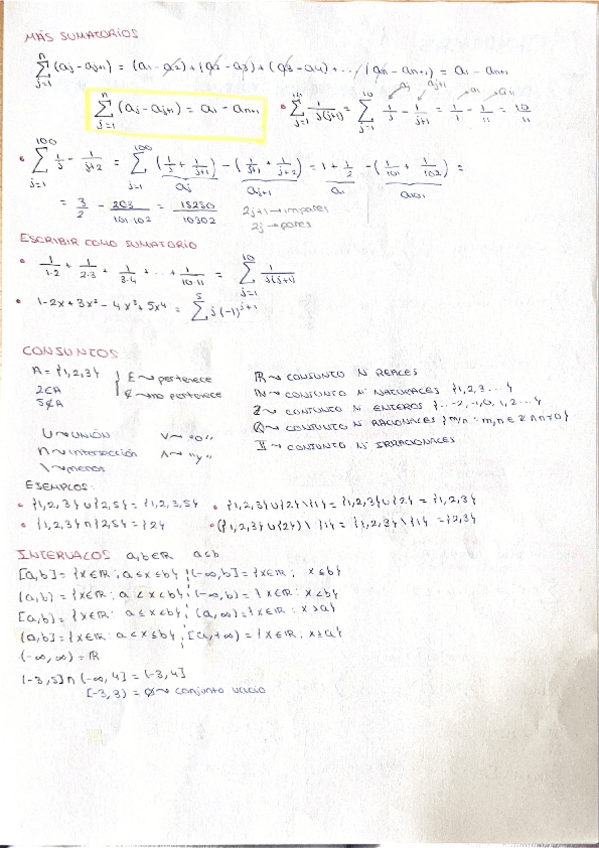 MÁS SUMATORIOS
n∑j=1 (aj - aj+1) = (a1 - a2) + (a2 - a3) + (a3 - a4) + ... (an - an+1) = a1 - an+1
n∑j=1 (aj - aj+1) = a1 - an+1
• 10∑j=1 1/j(j+1) = 10∑j=1 1/j - 1/j+1 = 1/1 - 1/11 = 10/11
aj aj+1 a1 a11
• 100∑j=1 1/j - 1/j+2 = 100∑j=1 (1/j + 1/j+1) - (1/j+1 + 1/j+2) = 1 + 1/2 - (1/101 + 1/102) =
aj aj+1 a1 a101
= 3/2 - 203/101·102 = 15250/10302
2j+1 → impares
2j → pares
ESCRIBIR COMO SUMATORIO
• 1/1·2 + 1/2·3 + 1/3·4 + ... + 1/10·11 = 10∑j=1 1/j(j+1)
• 1-2x+3x² - 4x³+5x4 = 5∑j=1 j(-1)j+1
CONJUNTOS
A = {1,2,3}
2∈A
5∉A
∈ ~ pertenece
∉ ~ no pertenece
ℝ ~ CONJUNTO Nº REALES
ℕ ~ CONJUNTO Nº NATURALES {1,2,3...}
ℤ ~ CONJUNTO Nº ENTEROS {...-2,-1,0,1,2...}
ℚ ~ CONJUNTO Nº RACIONALES {m/n : m,n ∈ ℤ ∧ n≠0}
𝕀 ~ CONJUNTO Nº IRRACIONALES
U ~ UNIÓN
∩ ~ intersección
\ ~ menos
∨ ~ "o"
∧ ~ "y"
EJEMPLOS:
• {1,2,3} ∪ {2,5} = {1,2,3,5}
• {1,2,3} ∪ {2} \ {1} = {1,2,3} ∪ {2} = {1,2,3}
• {1,2,3} ∩ {2,5} = {2}
• ({1,2,3} ∪ {2}) \ {1} = {1,2,3} \ {1} = {2,3}
INTERVALOS a,b∈ℝ a≤b
[a,b] = {x∈ℝ: a≤x≤b} ; (-∞,b] = {x∈ℝ: x≤b}
(a,b) = {x∈ℝ: a<x<b} ; (-∞,b) = {x∈ℝ: x<b}
[a,b) = {x∈ℝ: a≤x<b} ; (a,∞) = {x∈ℝ: x>a}
(a,b] = {x∈ℝ: a<x≤b} ; [a,+∞) = {x∈ℝ: x≥a}
(-∞,∞) = ℝ
(-3,5] ∩ (-∞,4] = (-3,4]
[-3,3) = ∅ ~ conjunto vacío